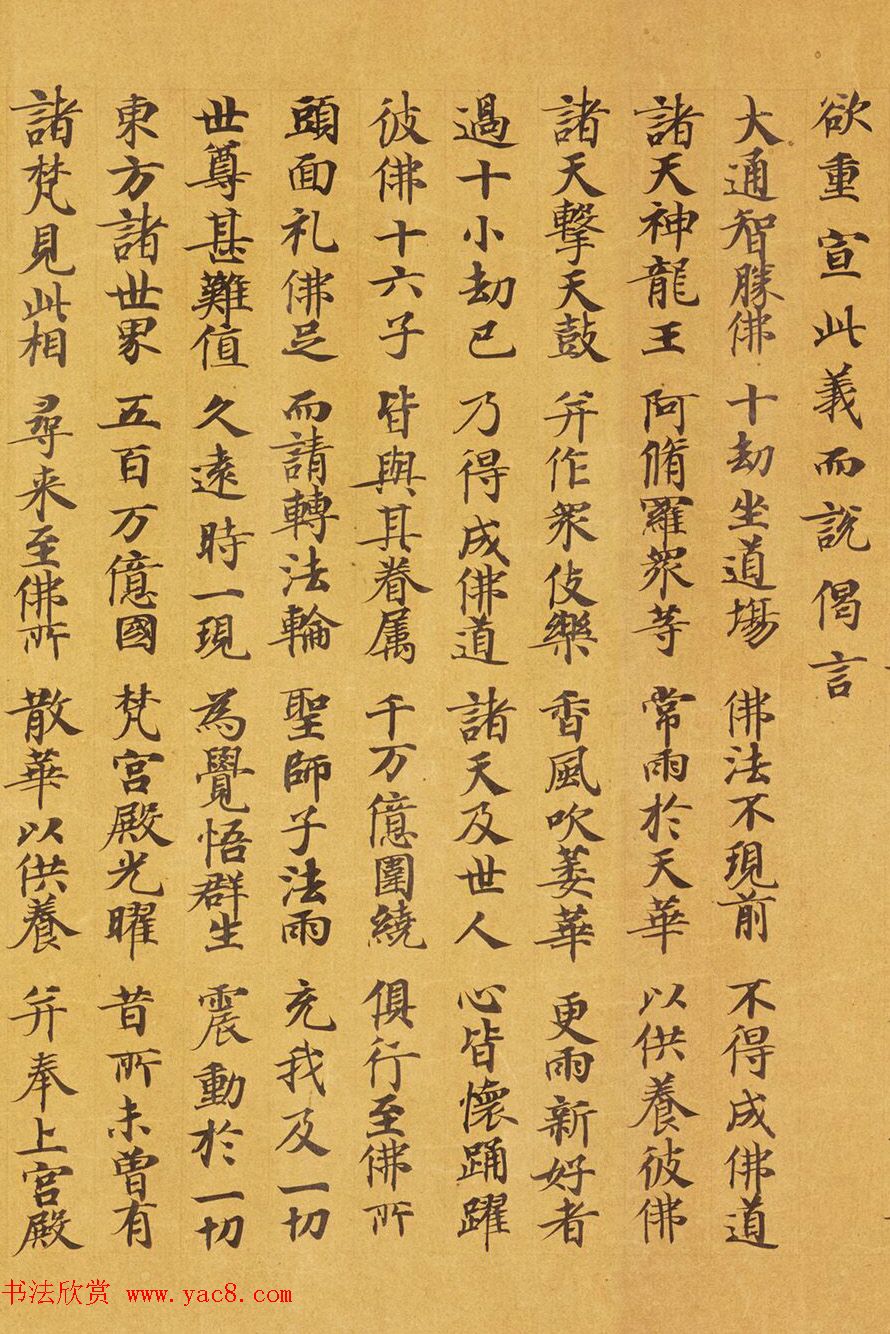 欲重宣此義而說偈言
大通智勝佛 十劫坐道場 佛法不現前 不得成佛道
諸天神龍王 阿脩羅眾等 常雨於天華 以供養彼佛
諸天擊天鼓 并作眾伎樂 香風吹萎華 更雨新好者
過十小劫已 乃得成佛道 諸天及世人 心皆懷踊躍
彼佛十六子 皆與其眷属 千万億圍繞 俱行至佛所
頭面礼佛足 而請轉法輪 聖師子法雨 充我及一切
世尊甚難值 久遠時一現 為覺悟群生 震動於一切
東方諸世界 五百万億國 梵宮殿光曜 昔所未曾有
諸梵見此相 尋来至佛所 散華以供養 并奉上宮殿
书法欣赏 www.yac8.com